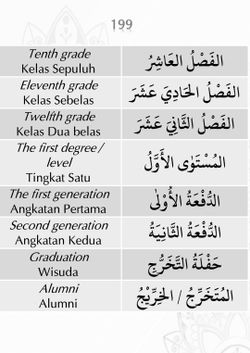 199
Tenth grade
Kelas Sepuluh
الفَصْلُ العَاشِرُ
Eleventh grade
Kelas Sebelas
الفَصْلُ الحَادِيَ عَشَرَ
Twelfth grade
Kelas Dua belas
الفَصْلُ الثَّانِيَ عَشَرَ
The first degree /
level
Tingkat Satu
المُسْتَوَى الأَوَّلُ
The first generation
Angkatan Pertama
الدُّفْعَةُ الأُوْلَى
Second generation
Angkatan Kedua
الدُّفْعَةُ الثَّانِيَةُ
Graduation
Wisuda
حَفْلَةُ التَّخَرُّجِ
Alumni
Alumni
المُتَخَرِّجُ / الخِرِّيْجُ